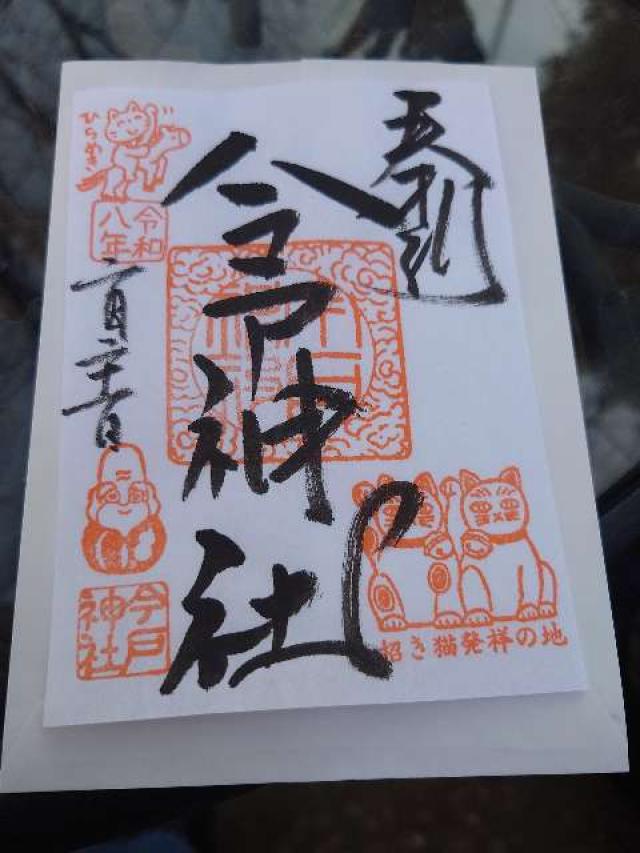 奉拝
今戸神社
招き猫発祥の地
ひらめき
令和
八年
今戸
神社